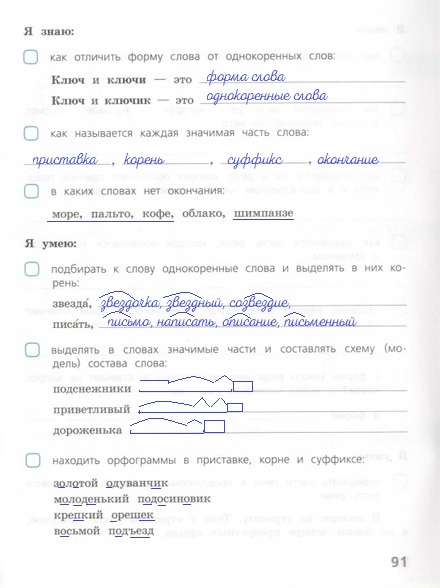 Я знаю:
как отличить форму слова от однокоренных слов:
Ключ и ключи — это форма слова
Ключ и ключик — это однокоренные слова
как называется каждая значимая часть слова:
приставка, корень, суффикс, окончание
в каких словах нет окончания:
море, пальто, кофе, облако, шимпанзе
Я умею:
подбирать к слову однокоренные слова и выделять в них ко-
рень:
звезда́, звездочка, звездный, созвездие,
писа́ть, письмо, написать, описание, письменный
выделять в словах значимые части и составлять схему (мо-
дель) состава слова:
подснежники
приветливый
дороженька
находить орфограммы в приставке, корне и суффиксе:
золотой одуванчик
молоденький подосиновик
крепкий орешек
восьмой подъезд
91